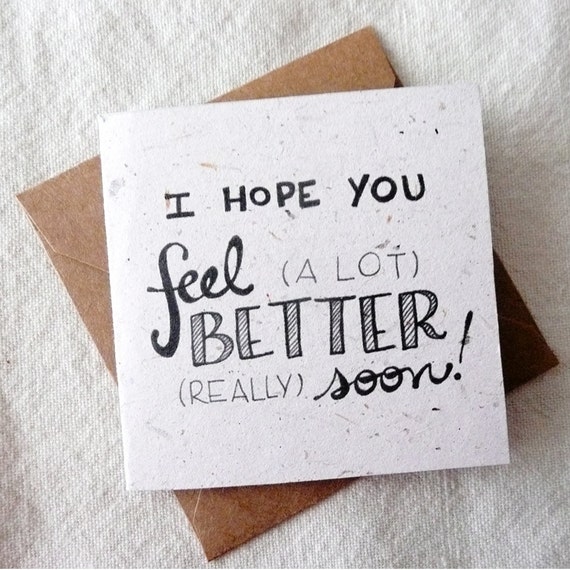 I HOPE YOU
feel (A LOT)
BETTER
(REALLY) soon!